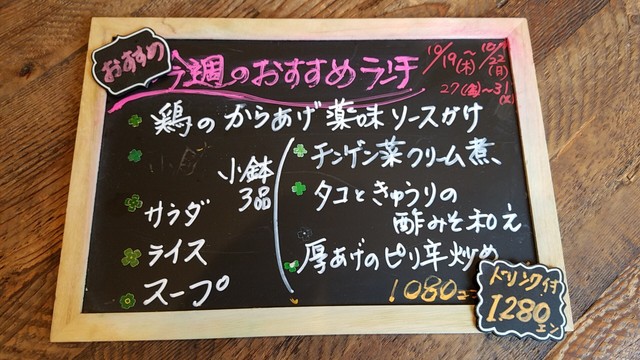 おすすめ
今週のおすすめランチ
10/19(木)〜10/22(日)
27(金)〜31(火)
鶏のからあげ薬味ソースかけ
小鉢
3品
サラダ
ライス
スープ
チンゲン菜クリーム煮
タコときゅうりの
酢みそ和え
厚あげのピリ辛炒め
1080エン
ドリンク付
1280エン